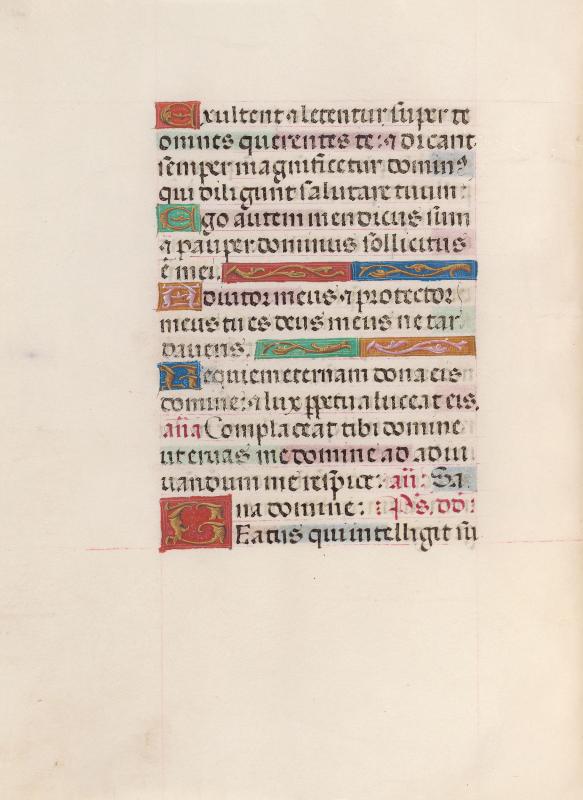 Exultent ⁊ letentur super te
omnes querentes te: ⁊ dicant
semper magnificetur domin9
qui diligunt salutare tuum:
Ego autem mendicus sum
⁊ pauper: dominus sollicitus
ē mei.
Adiutor meus ⁊ protector
meus tu es deus meus ne tar
daueris.
Requiem eternam dona eis
domine: ⁊ lux ꝑpetua luceat eis.
aña Complaceat tibi domine
ut eruas me domine ad adiu
uandum me respice: añ: Sa
na domine: Ps. dd:
Beatus qui intelligit su